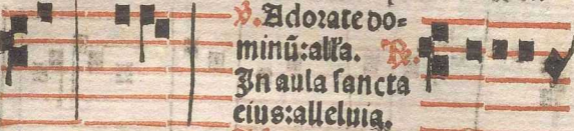 ℣. Adorate do=
minū:all'a. ℟.
In aula sancta
eius:alleluia.